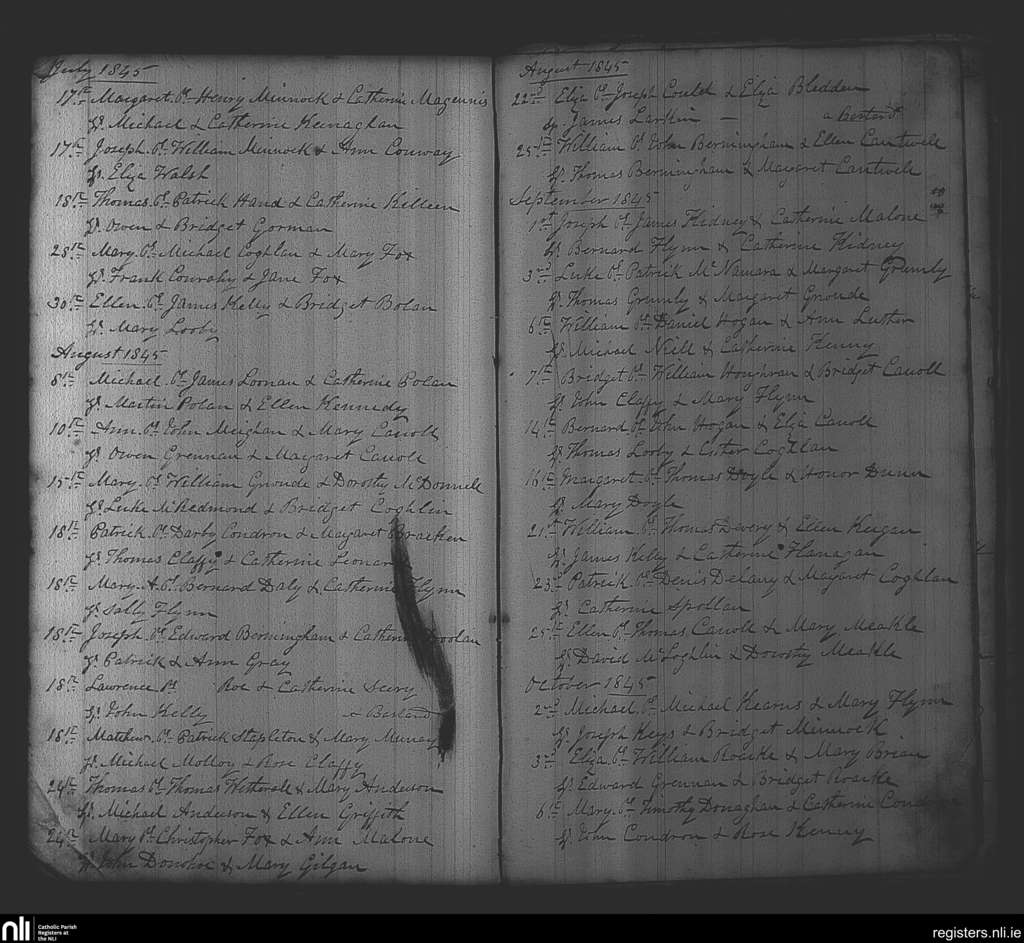 July 1845
17th Margaret. Pts Henry Minnock & Catherine Magennis
Sps. Michael & Catherine Keenaghan
17th Joseph. Pts William Minnock & Ann Conway
Sps. Eliza Walsh
18th Thomas. Pts Patrick Hand & Catherine Killeen
Sps. Owen & Bridget Gorman
28th Mary. Pts Michael Coghlan & Mary Fox
Sps. Frank Conrahy & Jane Fox
30th Ellen. Pts James Kelly & Bridget Bolan
Sps. Mary Looby
August 1845
8th Michael. Pts James Loonan & Catherine Polan
Sps. Martin Polan & Ellen Kennedy
10th Ann. Pts John Meighan & Mary Carroll
Sps. Owen Grennan & Margaret Carroll
15th Mary. Pts William Grionde & Dorothy McDonnell
Sps. Luke McRedmond & Bridget Coghlin
18th Patrick Pts Darby Condron & Margaret Bracken
Sps. Thomas Claffy & Catherine Leonard
18th Mary. A Pts Bernard Daly & Catherine Flynn
Sps. Sally Flynn
18th Joseph. Pts Edward Bermingham & Catherine Doolan
Sps. Patrick & Ann Gray
18th Lawrence Pts Roe & Catherine Seery
Sps. John Kelly a Bastard
18th Matthew. Pts Patrick Stapleton & Mary Murray
Sps. Michael Molloy & Rose Claffy
24th Thomas Pts Thomas Wetherall & Mary Anderson
Sps. Michael Anderson & Ellen Griffith
24th Mary Pts Christopher Fox & Ann Malone
Sps John Donohoe & Mary Gilgan
August 1845
22nd Eliza Pts Joseph Could & Eliza Bledden
Sp. James Larkin — a
25th William Pts John Bermingham & Ellen Cantwell
Sps. Thomas Bermingham & Margaret Cantwell
September 1845
1st Joseph Pts James Kidney & Catherine Malone
Sps. Bernard Flynn & Catherine Kidney
3rd Luke Pts Patrick McNamara & Margaret Grumly
Sps. Thomas Grumly & Margaret Grionde
6th William Pts Daniel Hogan & Ann Luther
Sps. Michael Neill & Catherine Kenny
7th Bridget Pts William Houghran & Bridget Carroll
Sps. John Claffy & Mary Flynn
14th Bernard Pts John Hogan & Eliza Carroll
Sps. Thomas Looby & Esther Coghlan
16th Margaret. Pts Thomas Doyle & Honor Dunn
Sps. Mary Doyle
21st William Pts Thomas Devery & Ellen Keegan
Sps. James Kelly & Catherine Flanagan
23rd Patrick Pts Denis Delany & Margaret Coghlan
Sps. Catherine Spollan
25th Ellen Pts Thomas Carroll & Mary Meakle
Sps. David McLoghlin & Dorothy Meakle
October 1845
2nd Michael. Pts Michael Kearns & Mary Flynn
Sps Joseph Keys & Bridget Minnock
3rd Eliza Pts William Roarke & Mary Brian
Sps Edward Grennan & Bridget Roarke
6th Mary. Pts Timothy Donaghan & Catherine Condron
Sps John Condron & Rose Kenny
nli Catholic Parish
Registers at
the NLI
registers.nli.ie